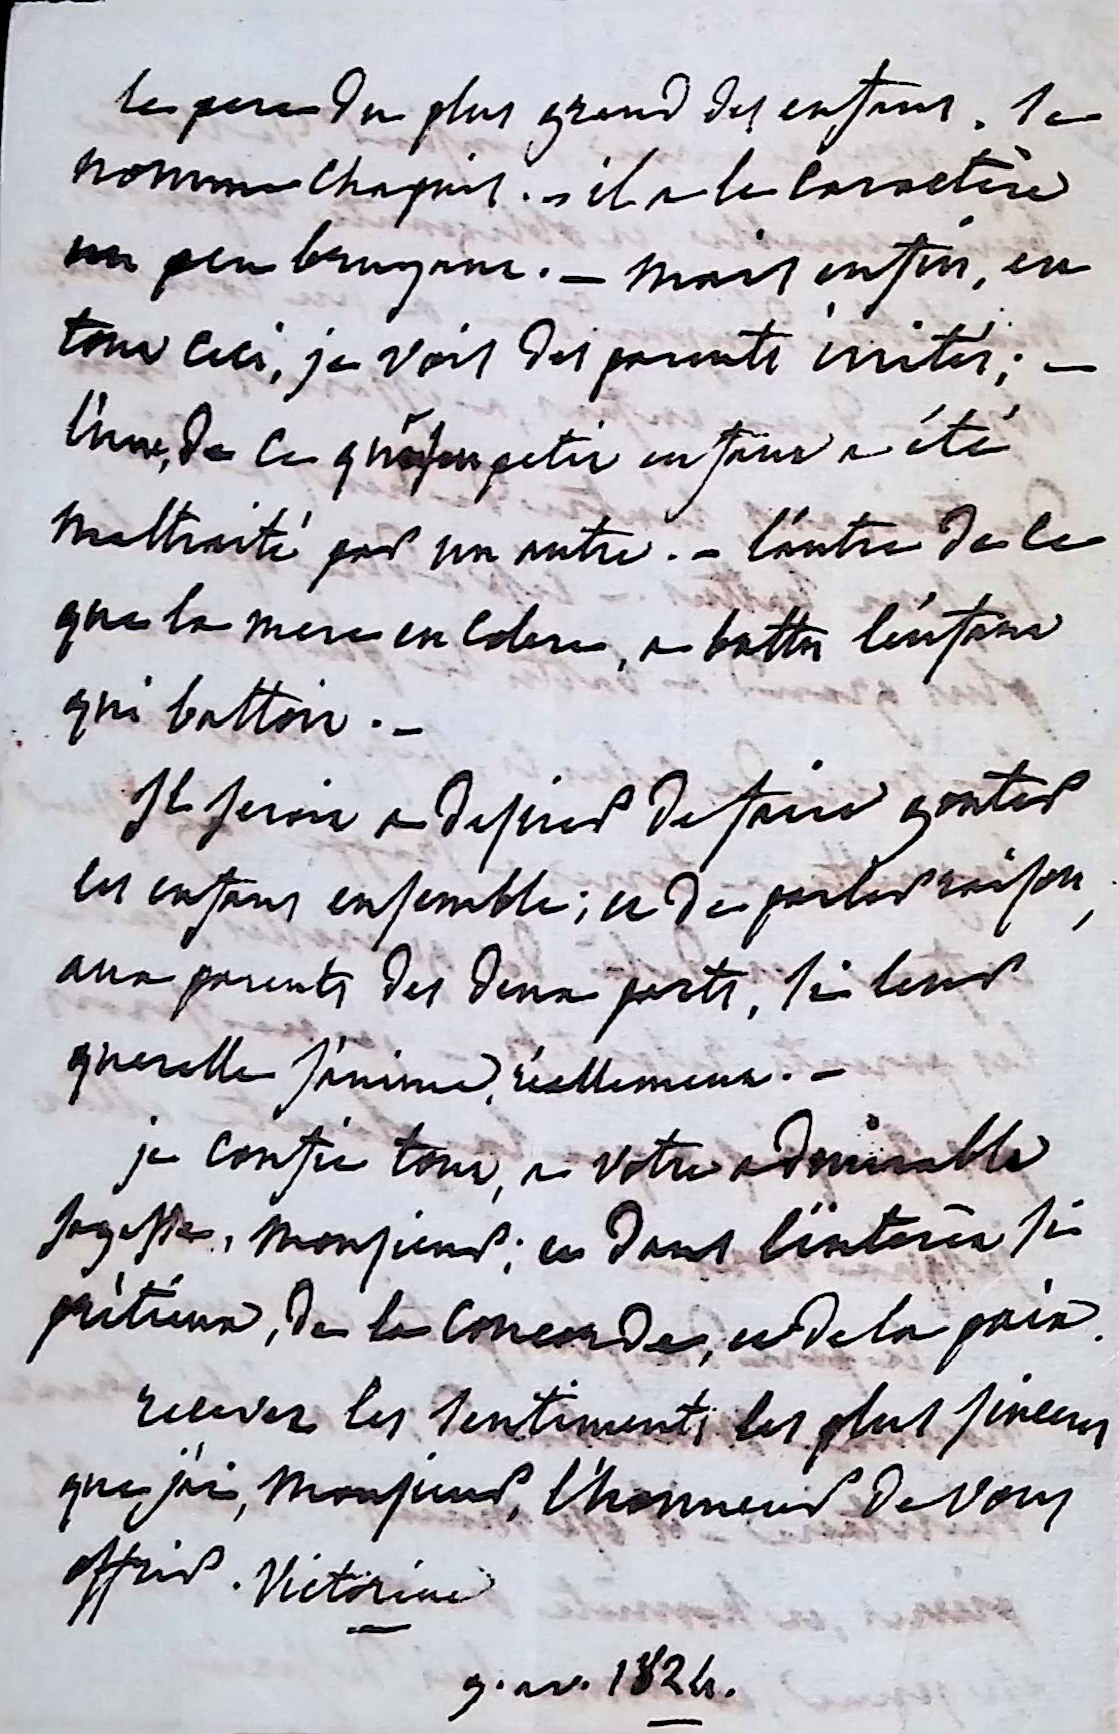 le pere du plus grand des enfans. se
nomme Chapuis. - il a le caractère
un peu bruyant. - mais enfin, en
tout ceci, je vois des parents irrités; -
l'une, de ce qu'un petit enfant a été
maltraité par un autre. - l'autre de ce
que la mere en colere, a battu l'enfant
qui battoit. -
Il seroit a desirer de faire gouter
les enfans ensemble; et de parler raison,
aux parents des deux parts, si leur
querelle s'anime, réellement. -
je confie tout, a votre admirable
sagesse, monsieur; et dans l'intérêt si
prétieux, de la concorde, et de la paix.
recevez les sentiments les plus sinceres
que j'ai, monsieur, l'honneur de vous
offrir. Victorine
9. av. 1824.